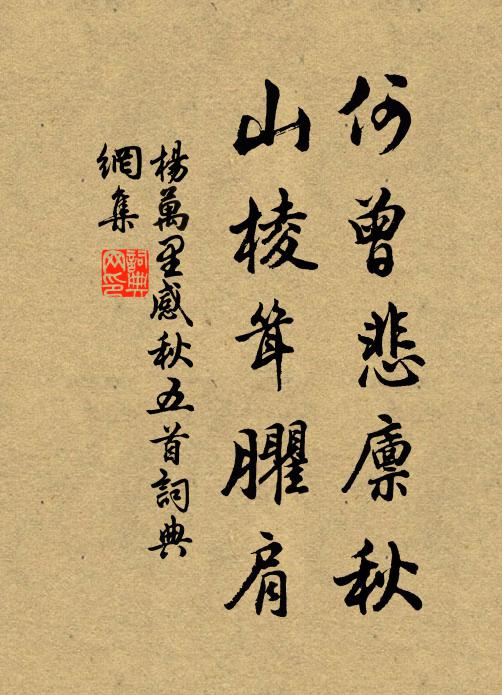 何曾悲廪秋
山棱耸臞肩
楊萬里感秋五首詞典
網集
詞典
网印